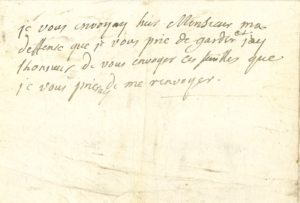 je vous envoyay hier Monsieur ma
deffense que je vous prie de garder et jay
lhonneur de vous envoyer ces feuilles que
je vous prie de me renvoyer.